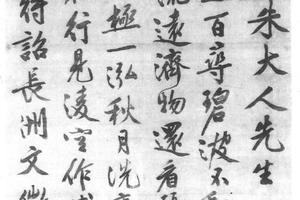 朱大人先生
百尋碧波不
流遠濟物還看
極一泓秋月洗
行見凌空作
待詔長洲文徵